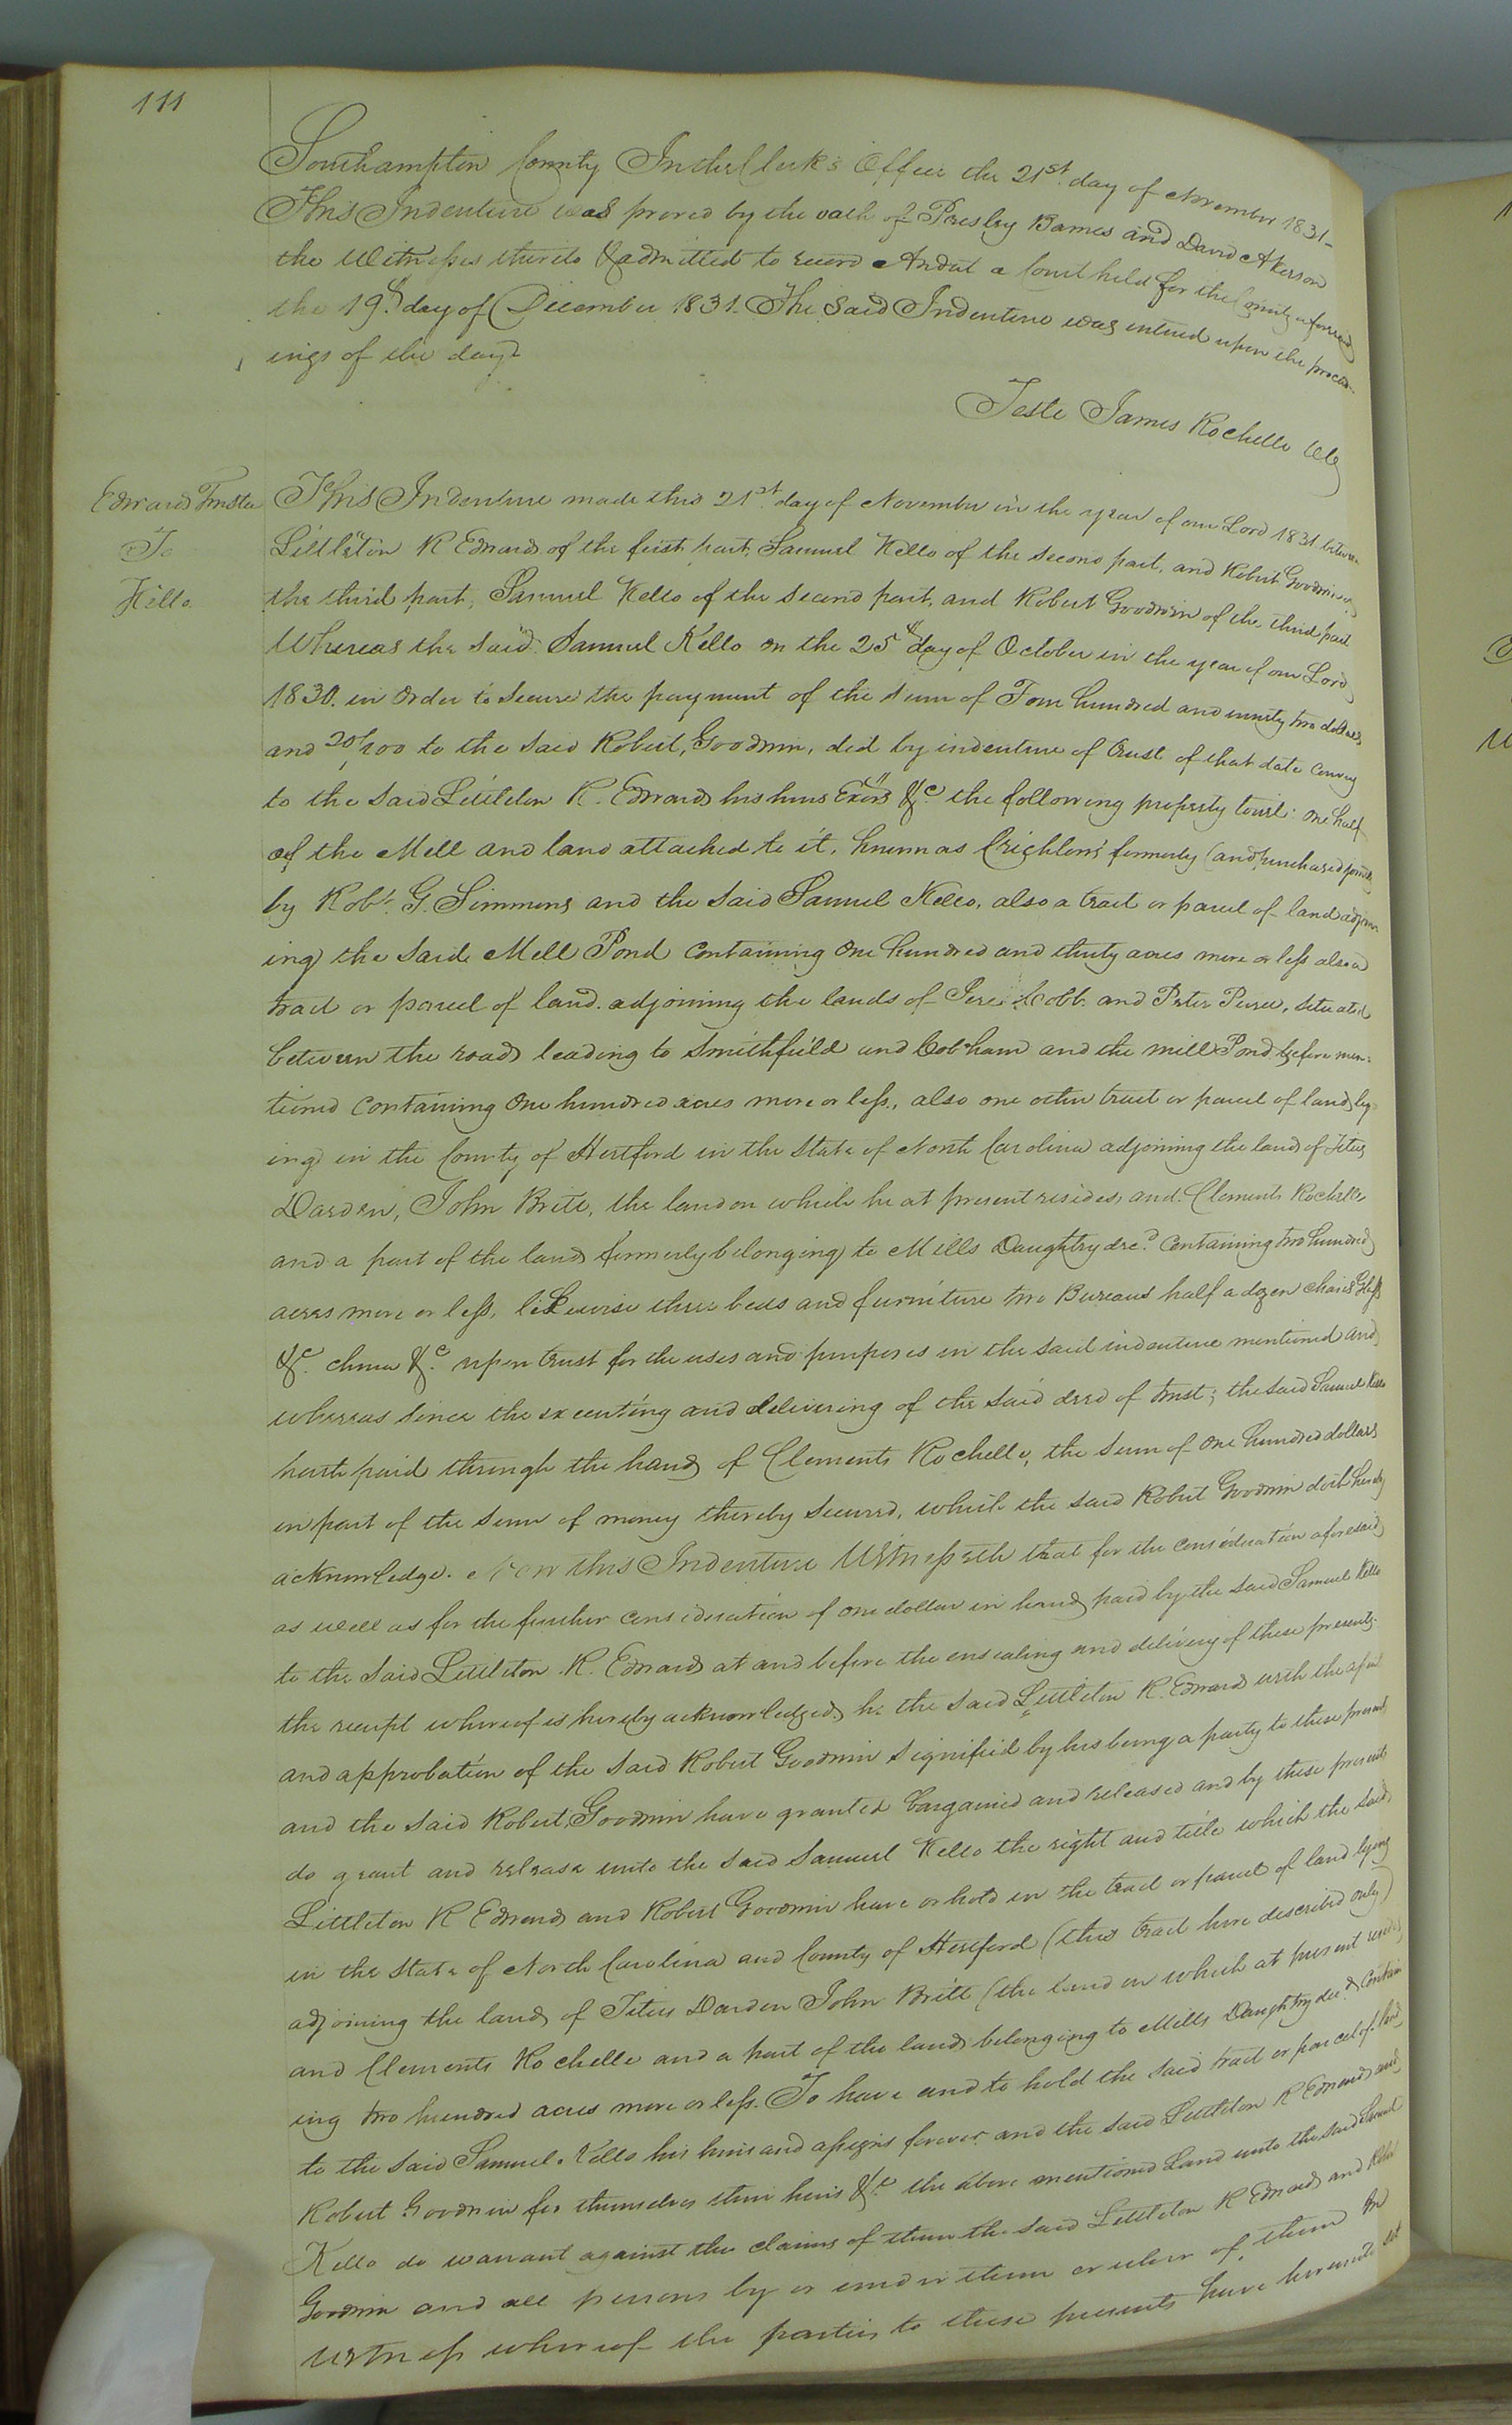 111
Southampton County In the Clerk's Office the 21st. day of November 1831-
This Indenture was proved by the oath of Presley Barnes and David Akerson
the Witnesses thereto & admitted to record And at a Court held for the County aforesaid
the 19th. day of December 1831. The Said Indenture was entered upon the proceed-
ings of the day
Teste James Rochelle Clk
Edwards Trustee
To
Kello.
This Indenture made this 21st. day of November in the year of our Lord 1831 between
Littleton R Edwards of the first part, Samuel Kello of the second part, and Robert Goodwin of
the third part, Samuel Kello of the second part, and Robert Goodwin of the third part
Whereas the said Samuel Kello on the 25th day of October in the year of our Lord
1830. in order to secure the payment of the sum of Four hundred and ninety two dollars
and 20/100 to the said Robert, Goodwin, did by indenture of trust of that date convey
to the said Littleton R. Edwards his heirs Exors &c the following property towit: one half
of the Mill and land attached to it, known as Crichlow's formerly (and purchased jointly
by Robt. G. Simmons and the said Samuel Kello, also a tract or parcel of land adjoin
ing the said Mill Pond containing One hundred and thirty acres more or less also a
tract or parcel of land adjoining the lands of Jere: Cobb. and Peter Pierce, situated
between the roads leading to Smithfield and Cobham and the mill Pond before men-
tioned containing One hundred acres more or less, also one other tract or parcel of land ly
ing in the County of Hertford in the State of North Carolina adjoining the land of Titus
Darden, John Britt, the land on which he at present resides, and Clements Rochelle,
and a part of the land formerly belonging to Mills Daughtry decd. containing two hundred
acres more or less, likewise three beds and furniture two Bureaus half a dozen chairs Glass
&c. china &c. upon trust for the uses and purposes in the said indenture mentioned and
whereas since the executing and delivering of the said deed of trust; the said Samuel Kello
hath paid through the hands of Clements Rochelle, the sum of One hundred dollars
in part of the sum of money thereby secured, which the said Robert Goodwin doth hereby
acknowledge. Now this Indenture Witnesseth that for the consideration aforesaid
as well as for the further consideration of one dollar in hand paid by the said Samuel Kello
to the said Littleton R. Edwards at and before the ensealing and delivery of these presents.
the receipt whereof is hereby acknowledged, he the said Littleton R. Edwards with the assent
and approbation of the said Robert Goodwin signified by his being a party to these presents
and the said Robert, Goodwin have granted bargained and released and by these presents
do grant and release unto the said Samuel Kello the right and title which the said
Littleton R Edwards and Robert Goodwin have or hold in the tract or parcel of land lying
in the State of North Carolina and County of Hertford (this tract here described only)
adjoining the land, of Titus Darden John Britt (the land on which at present resides
and Clements Rochelle and a part of the land belonging to Mills Daughtry decd. contain
ing two hundred acres more or less. To have and to hold the said tract or parcel of land,
to the said Samuel Kello his heirs and assigns forever and the said Littleton R Edwards and
Robert Goodwin for themselves their heirs &c the above mentioned Land unto the said Samuel
Kello do warrant against the claims of them the said Littleton R Edwards and Robt
Goodwin and all persons by or under them or either of them In
Witness whereof the parties to these presents have hereunto set